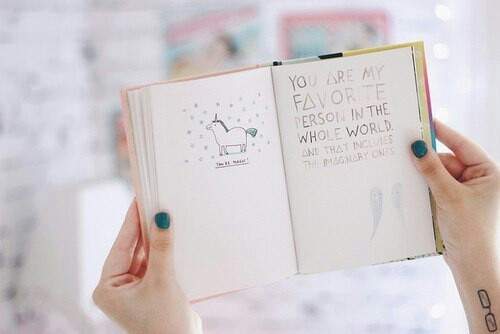 YOU'RE MAGIC!
YOU ARE MY
FAVORITE
PERSON IN THE
WHOLE WORLD.
AND THAT INCLUDES
THE IMAGINARY ONES.